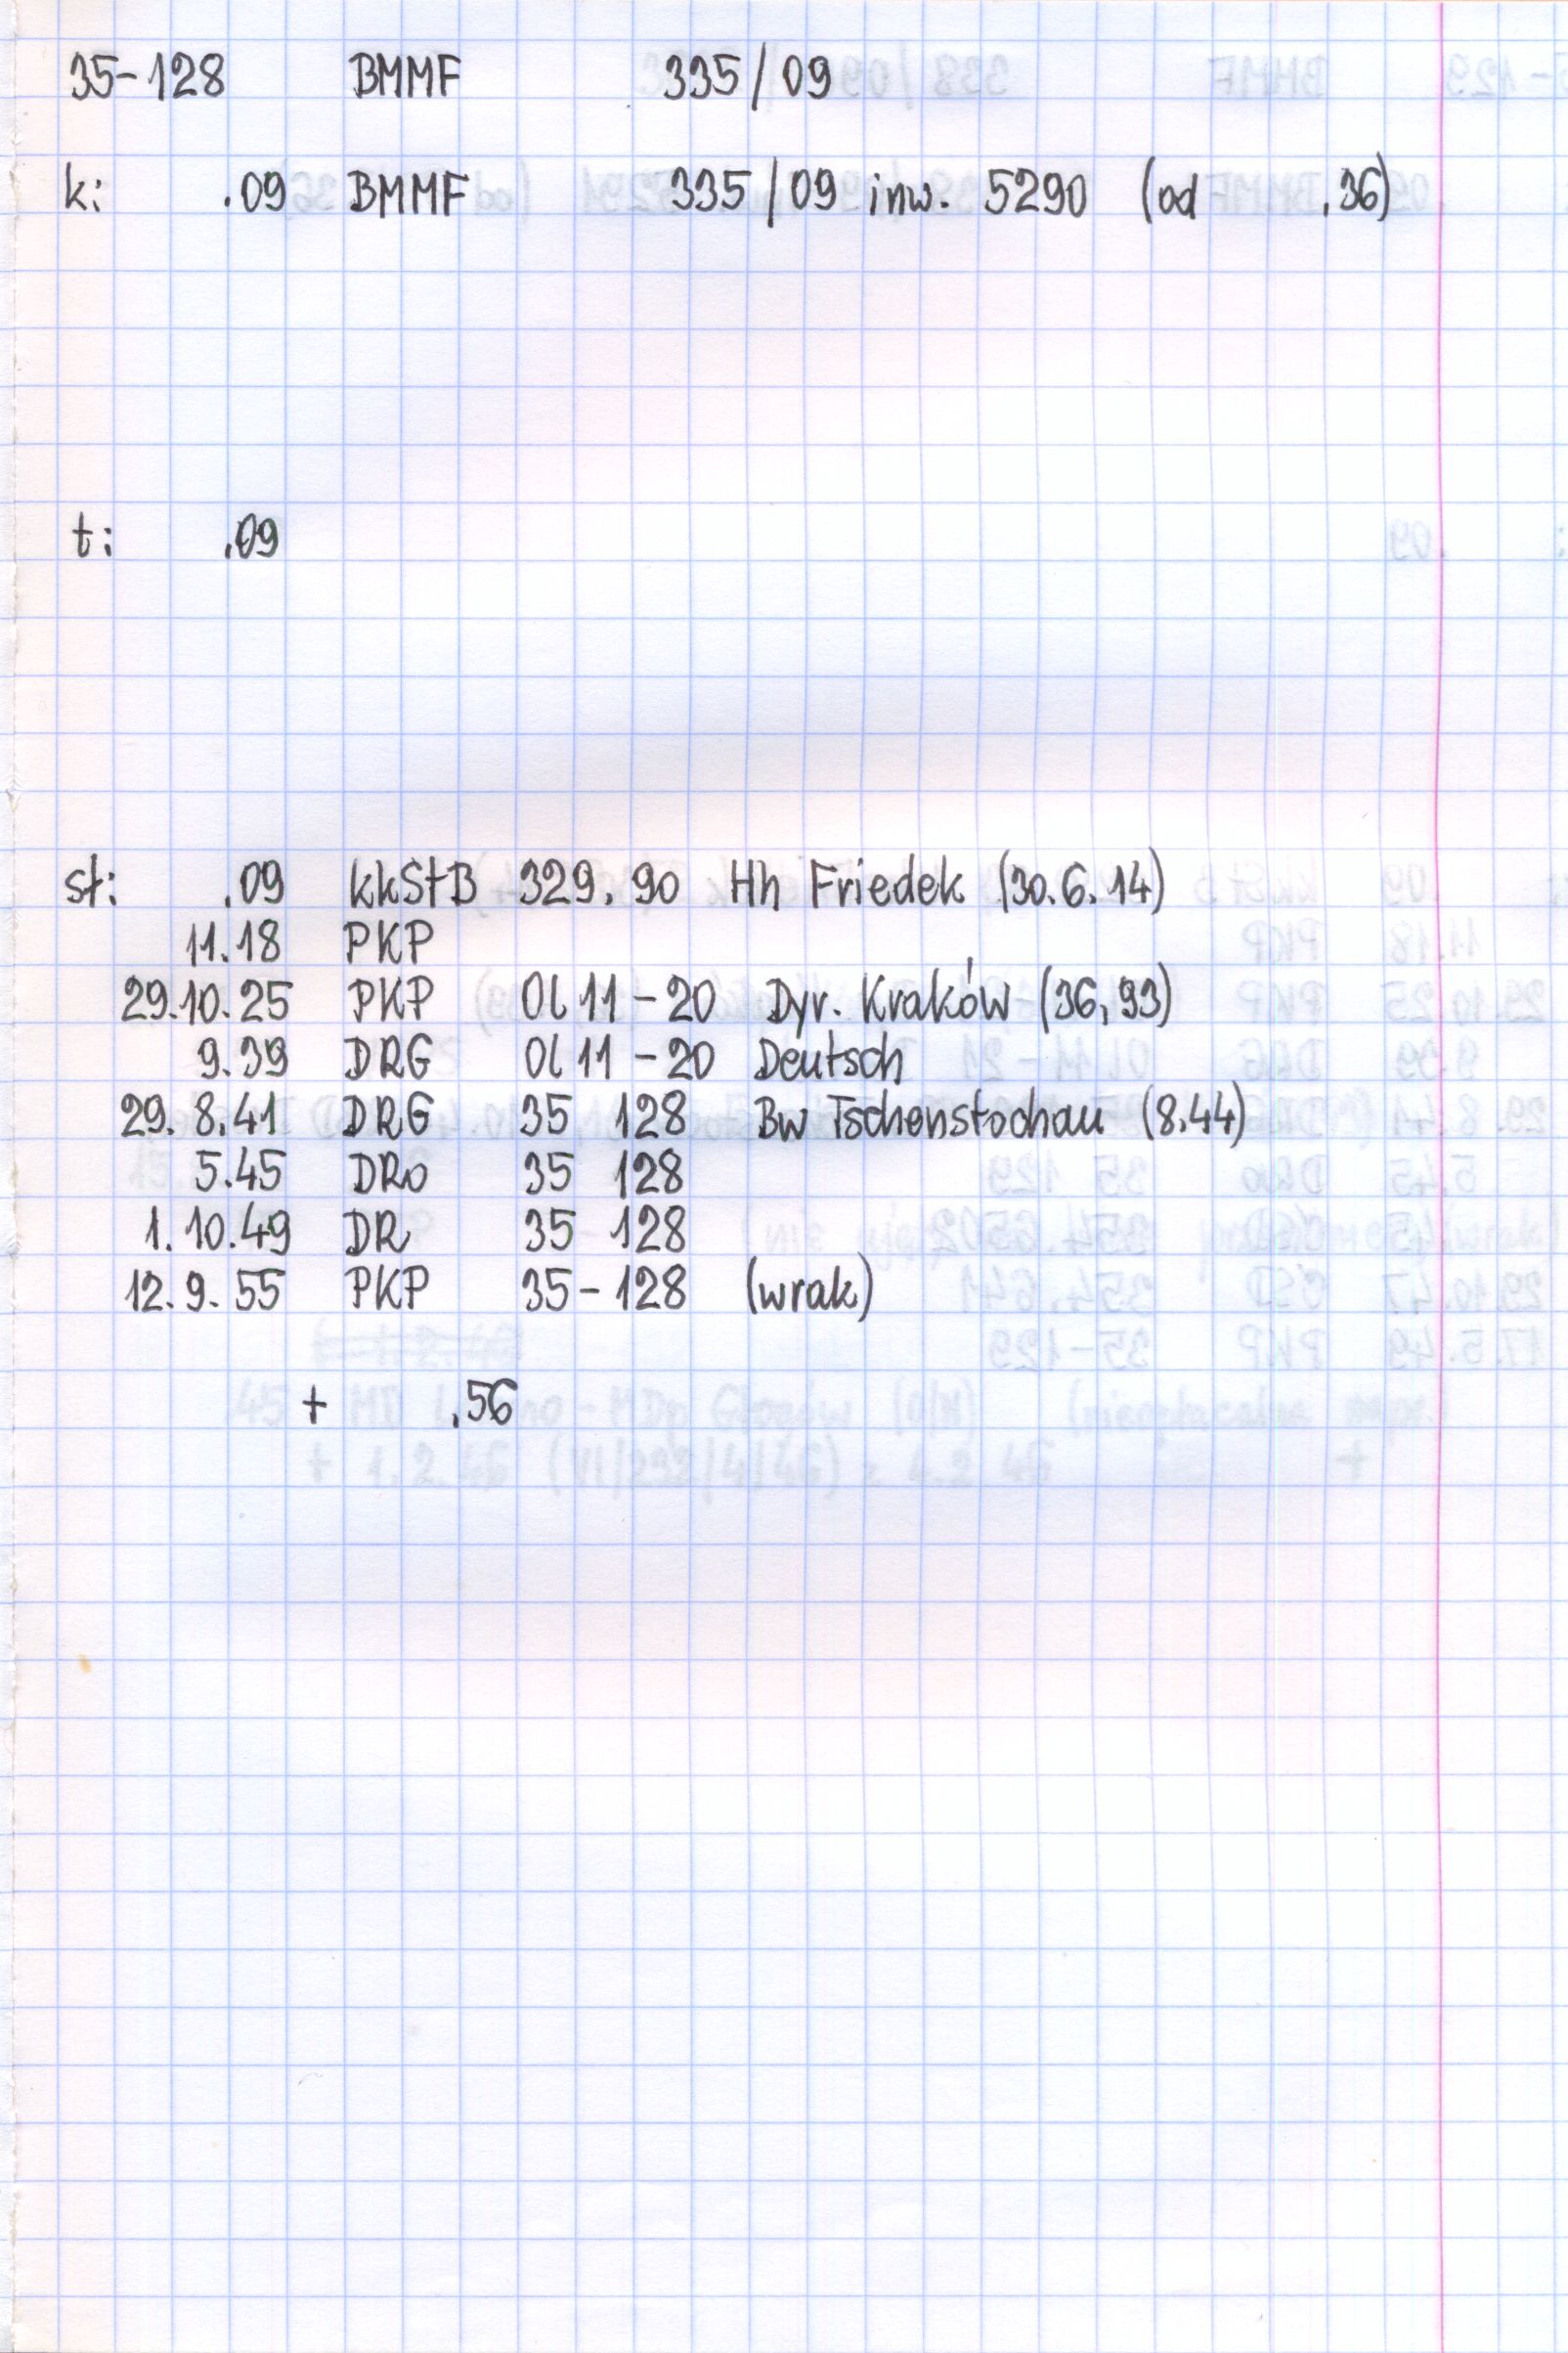 35-128 BMMF 335/09
k: .09 BMMF 335/09 inw. 5290 (od .36)
t: .09
st: .09 kkStB 329.90 Hh Friedek (30.6.14)
11.18 PKP
29.10.25 PKP Ol 11-20 Dyr. Kraków (36,93)
9.39 DRG Ol 11-20 Deutsch
29.8.41 DRG 35 128 Bw Tschenstochau (8.44)
5.45 DRo 35 128
1.10.49 DR 35 128
12.9.55 PKP 35-128 (wrak)
+ .56